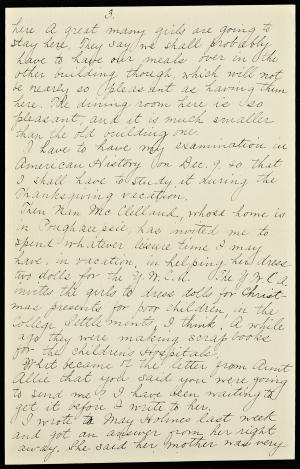 3.
here. A great many girls are going to
stay here. They say we shall probably
have to have our meals over in the
other building though, which will not
be nearly so pleasant as having them
here. The dining room here is so
pleasant, and it is much smaller
than the old building one.
I have to have my examination in
American History on Dec. 9, so that
I shall have to study it during the
Thanksgiving vacation.
Mc Clelland, whose home is
in Poughkeepsie, has invited me to
spend whatever leisure time I may
have, in vacation, in helping her dress
two dolls for the Y.W.C.A. The Y.W.C.A.
invites the girls to dress dolls for Christ-
mas presents for poor children, in the
College Settlements, I think. A while
ago they were making scrapbooks
for the Children's Hospitals.
What became of the letter from Aunt
Allie that you said you were going
to send me? I have been waiting to
get it before I write to her.
I wrote to May Holmes last week
and got an answer from her right
away. She said her mother was very